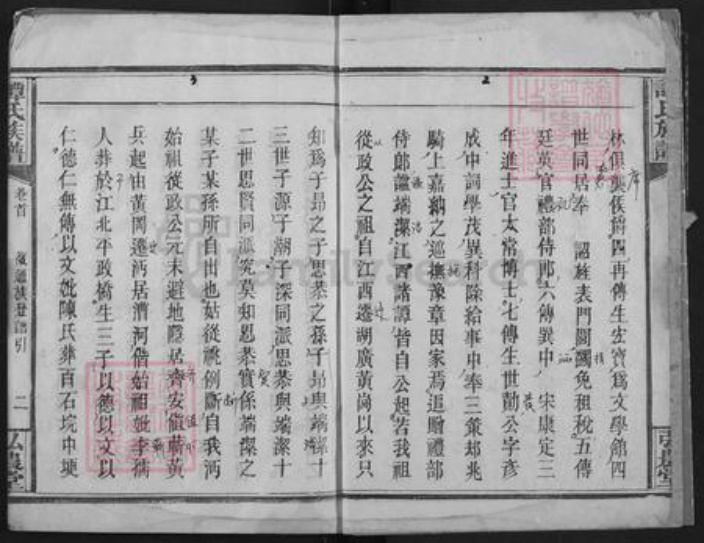 林俱襲侯爵四冉傳生宏寶為文學館四
世同居奉 詔旌表門閭蠲免租稅五傳
廷英官禮部侍郎六傳巽中 宋康定三
年進士官太常博士七傳生世勣公字彥
成中詞學茂異科除給事中奉三策却兆
騎上嘉納之巡撫豫章因家焉追贈禮部
侍郎諡端潔江西諸譚皆自公起若我祖
從政公之祖自江西遷湖廣黃岡以來只
知為子昂之子思恭之孫子昂與端潔十
三世子源子潮子深同派思恭與端潔十
二世思賢同派究莫知思恭實係端潔之
某子某孫所自出也姑從祧例斷自我沔
始祖從政公元末避地隱居齊安值蘄黃
兵起由黃岡遷沔居漕河偕始祖妣李孺
人葬於江北平政橋生三子以德以文以
仁德仁無傳以文妣陳氏葬百石垸中埂
譚氏族譜
卷首
二
弘農堂